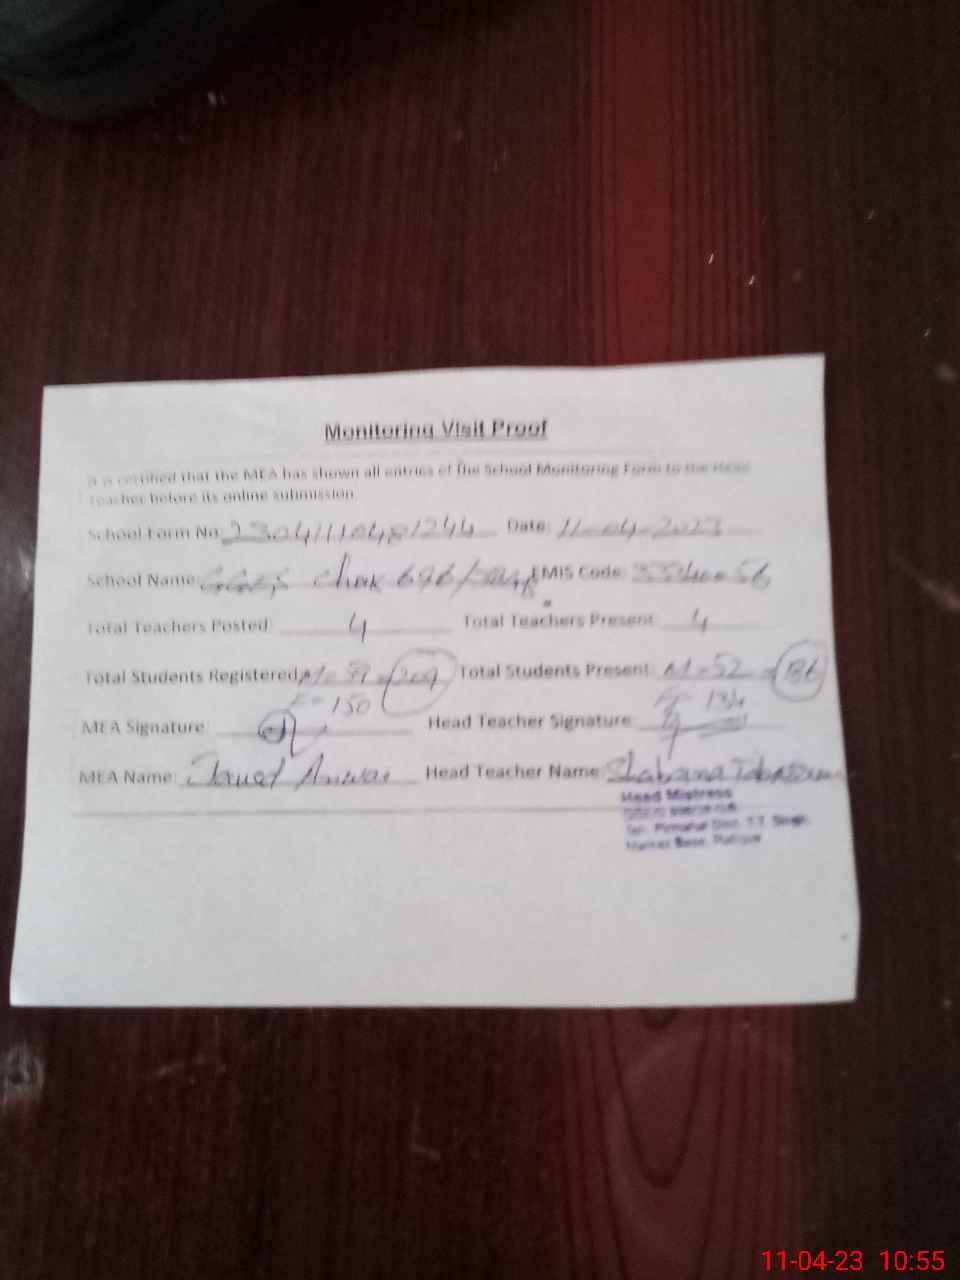 Monitoring Visit Proof
It is certified that the MEA has shown all entries of the School Monitoring Form to the Head
Teacher before its online submission
School Form No: Date: 11-04-2023
School Name: GGES Chak EMIS Code:
Total Teachers Posted: 4 Total Teachers Present: 4
Total Students Registered: M= Total Students Present: M=52 186
F= 150 F= 134
MEA Signature: Head Teacher Signature:
MEA Name: Javed Anwar Head Teacher Name: Shabana Tabassum
Head Mistress
Teh. Pirmahal Distt. T.T. Singh
Markaz Base.
11-04-23 10:55